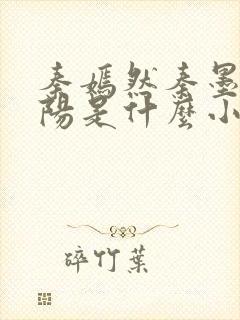 秦嫣然秦墨
陽是什麼小
碎竹葉